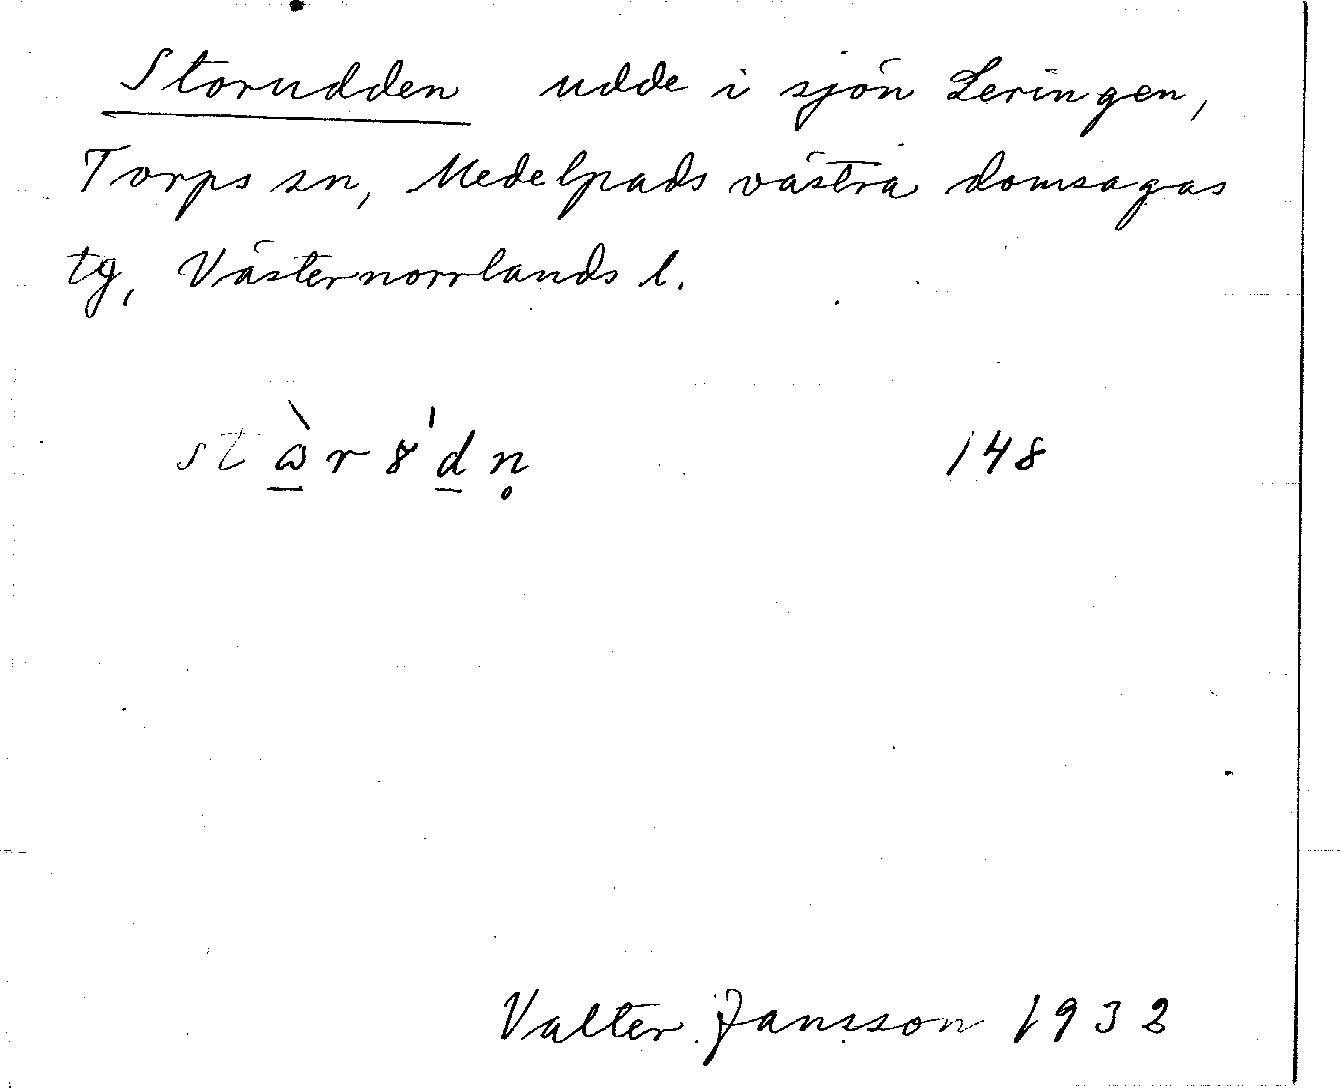 Storudden udde i sjön Leringen,
Torps sn, Medelpads västra domsagas
tg, Västernorrlands l.
stὼ̲r8'd̲n̥ 148
Valter Jansson 1932